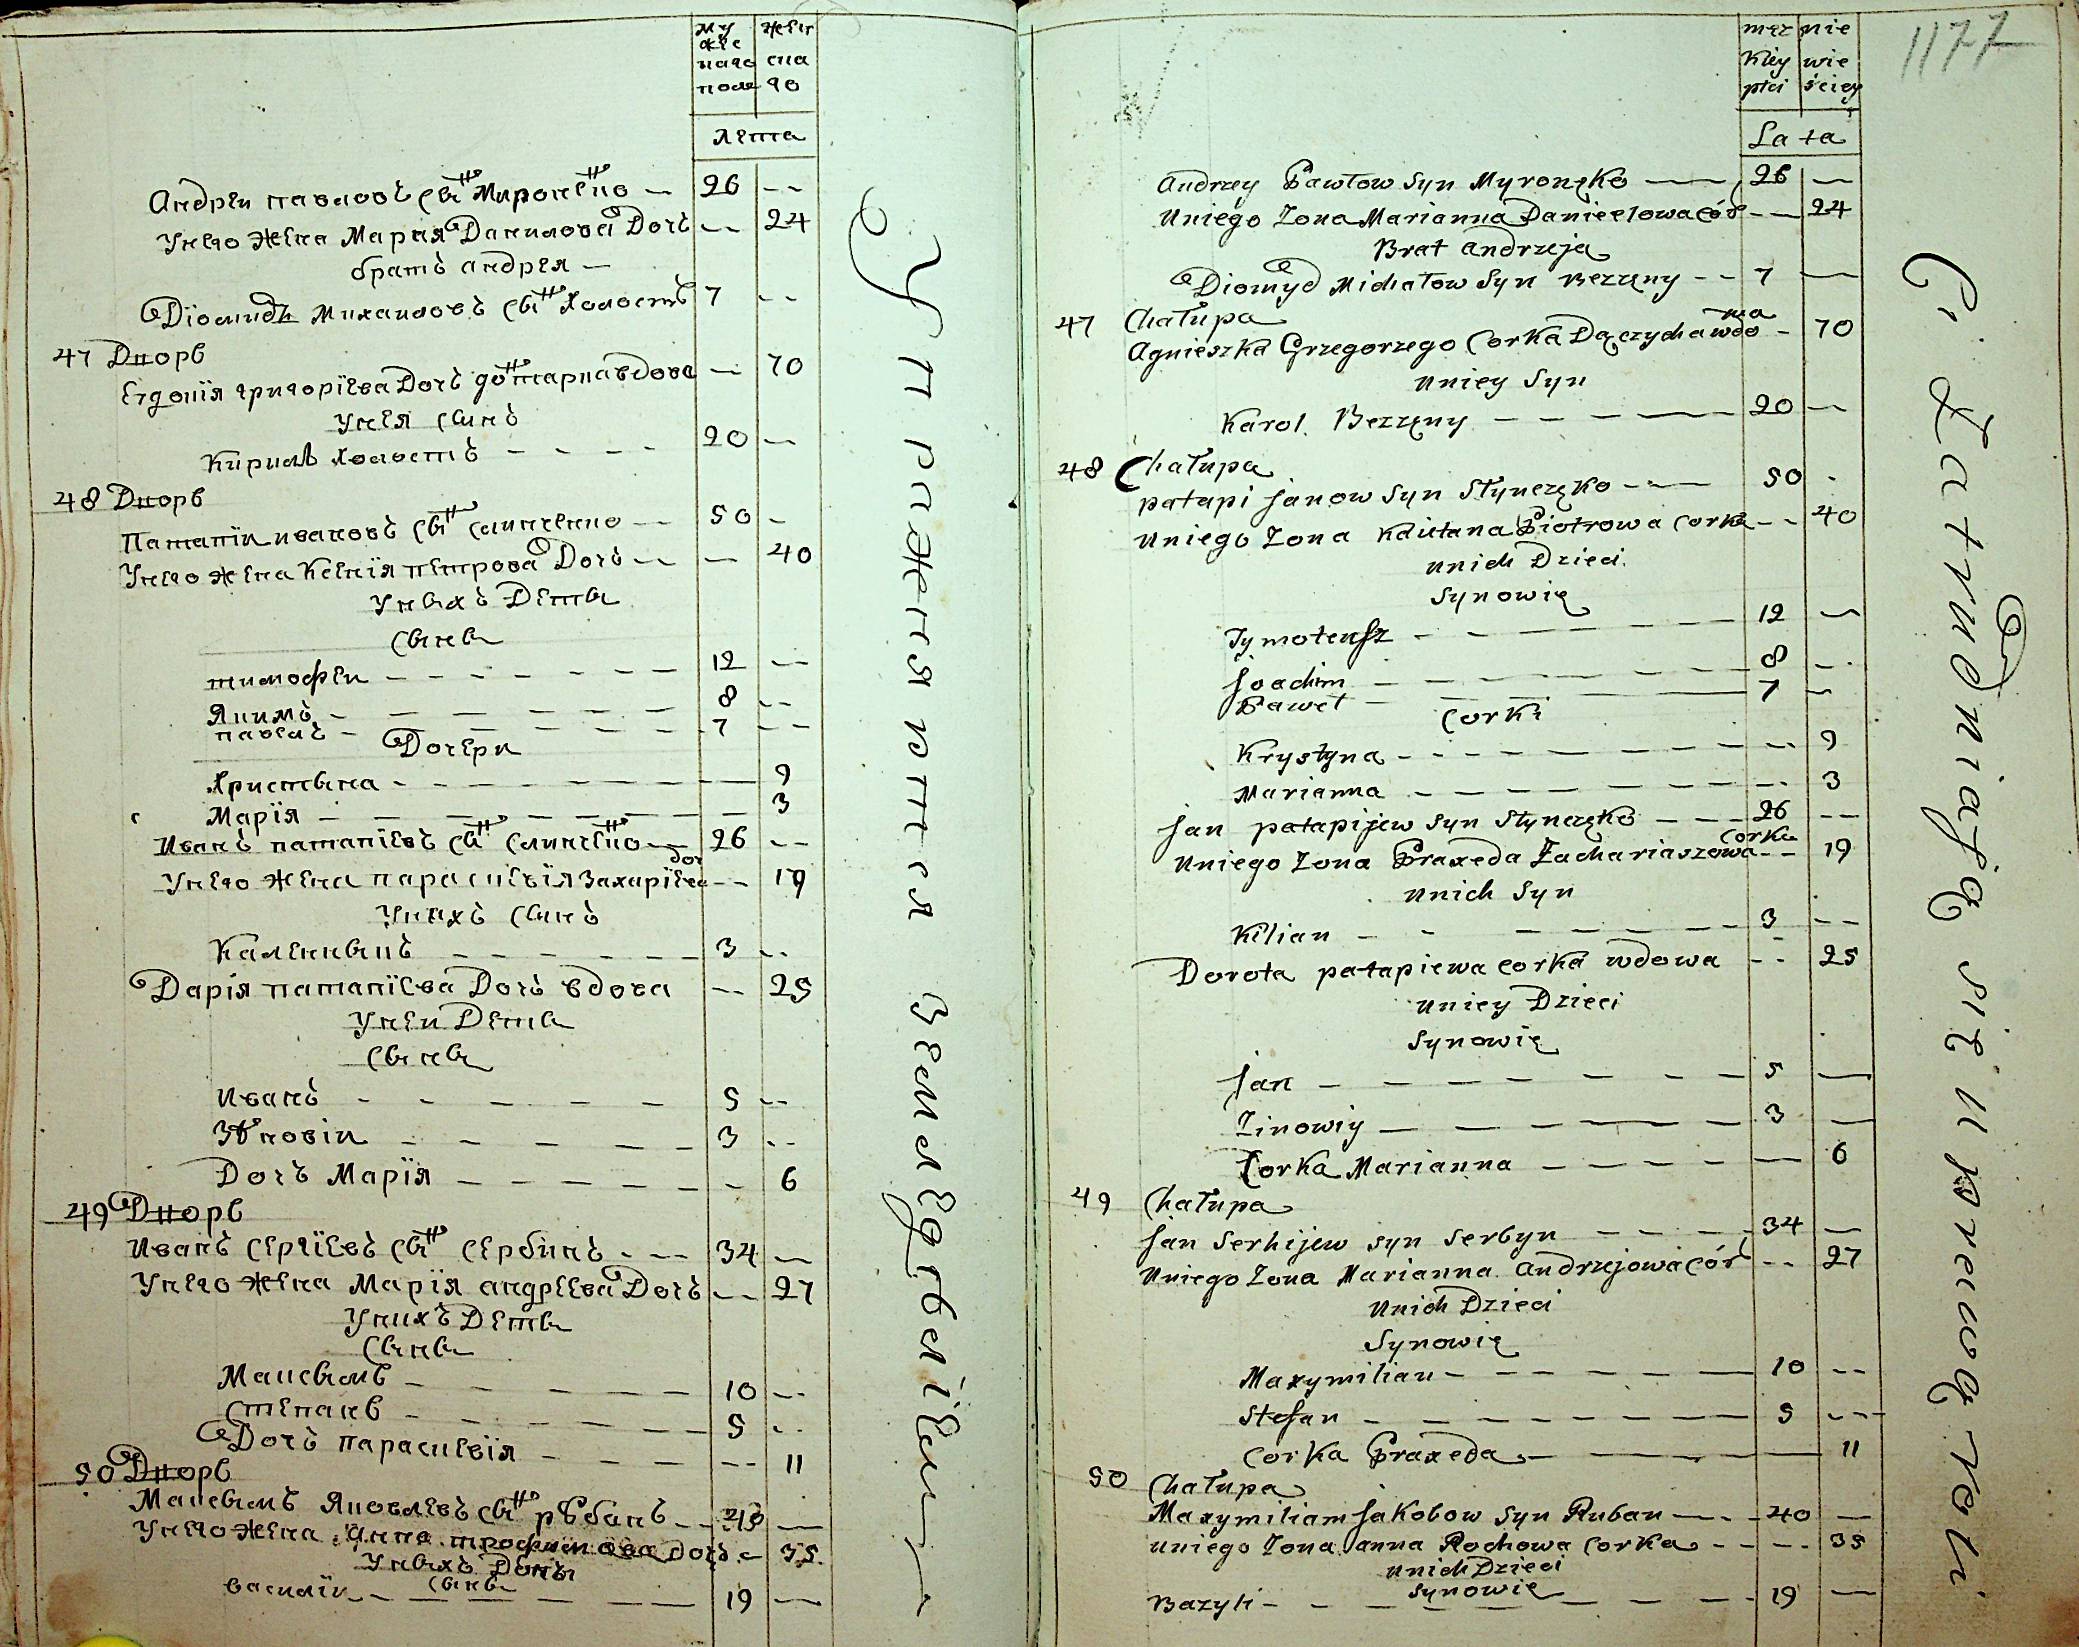 му
жес
каго
пола
женс
ска
го
лета
Андреи павловъ снъ Миронєнко — 26 --
Унего жена Мария Данилова Дочь -- 24
братъ андрея —
Діомидъ михаиловъ снъ холостъ 7 --
47 Дворъ
григорїєва Дочь вдова — 70
Унея сынъ
Кирилъ холостъ - - - - 20 --
48 Дворъ
Патапїи ивановъ снъ слинченко -- 50 -
Унего жена Ксенїя пєтрова Дочь -- — 40
Унихъ Дети
сыны
тимофеи - - - - - - 12 --
Якимъ - - - - - - 8 --
павелъ - - - - - - 7 --
Дочери
Христына - - - - - - 9
Марїя - - - - - - 3
Иванъ патапїєвъ снъ слинченко — 26 --
Унего жена параскевїя Захарїева доч -- 19
Унихъ сынъ
Каленикъ - - - - - 3 --
Дарїя патапїєва Дочь вдова -- 25
Унеи Дети
сыны
Иванъ - - - - - 5 --
Зѣновїи - - - - 3 --
Дочь Марїя - - - - - - 6
49 Дворъ
Иванъ Сергїевъ снъ Сербинъ - -- 34 —
Унего жена Марїя андрєєва Дочь -- 27
Унихъ Дети
сыны
Максымъ - - - - - 10 --
Степанъ - - - - - 5 --
Дочь параскевїя - - - - -- 11
50 Дворъ
Максымъ Яковлевъ снъ рѣбанъ -- 40 —
Унего жена Анна дочь - 35
Унихъ Дети
сыны
василїи - - - - - 19 —
Упражняются земледѣлїем
1177
męz
kiey
płci
nie
wie
ściey
La ta
Andrzey Pawłow Syn Myronęko — 26 —
Uniego Zona Marianna Danieelowa cór -- 24
Brat andrzeja
Diomyd Michałow Syn Bezzęny -- 7 —
47 Chałupa
Agnieszka Grzegorzego Corka wdo wa - 70
Uniey Syn
Karol Bezzęny - - - — 20 —
48 Chałupa
patapi Janow Syn Słynczęko - — 50 -
Uniego Zona Piotrowa Corka -- 40
Unich Dzieci
Synowię
Tymoteusz - - - - - 12 —
Joachim - - - - - 8 --
Paweł - - - - - 7 —
Corki
Krystyna - - - - - - 9
Marianna - - - - - - 3
Jan patapijew Syn Słynczęko - -- 26 --
Uniego Zona Praxeda Zachariaszowa corka -- 19
Unich Syn
Kilian - - - - - - 3 --
Dorota patapiewa corka wdowa -- 25
Uniey Dzieci
Synowię
Jan - - - - - - - 5 —
Zinowiy - - - - - - 3 —
Corka Marianna - - - - — 6
49 Chałupa
Jan Serhijew syn Serbyn - - - - 34 —
Uniego Zona Marianna andrzejowa cór -- 27
Unich Dzieci
Synowię
Maxymilian - - - - - 10 --
Stefan - - - - - - 5 ---
Corka Praxeda - — — 11
50 Chałupa
Maxymiliam Jakobow Syn Ruban — -- 40 —
uniego Zona anna Rochowa Corka - -- 35
unich Dzieci
synowię
Bazyli - - - - - - - 19 —
Zatrudniają się uprawą roli